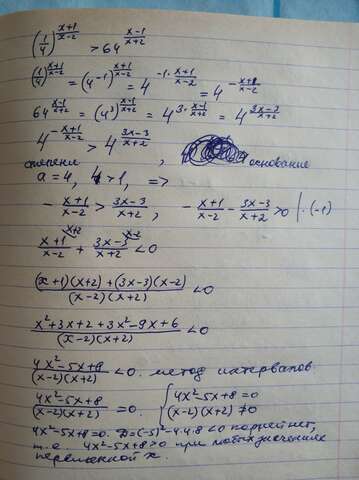 (1/4)^((x+1)/(x-2)) > 64^((x-1)/(x+2))
(1/4)^((x+1)/(x-2)) = (4^(-1))^((x+1)/(x-2)) = 4^(-1·(x+1)/(x-2)) = 4^(-(x+1)/(x-2))
64^((x-1)/(x+2)) = (4^3)^((x-1)/(x+2)) = 4^(3·(x-1)/(x+2)) = 4^((3x-3)/(x+2))
4^(-(x+1)/(x-2)) > 4^((3x-3)/(x+2)) ,
степени основание
a = 4, 4 > 1, =>
-(x+1)/(x-2) > (3x-3)/(x+2), -(x+1)/(x-2) - (3x-3)/(x+2) > 0 | ·(-1)
(x+1)/(x-2) + (3x-3)/(x+2) < 0
((x+1)(x+2) + (3x-3)(x-2))/((x-2)(x+2)) < 0
(x²+3x+2+3x²-9x+6)/((x-2)(x+2)) < 0
(4x²-5x+8)/((x-2)(x+2)) < 0. метод интервалов.
(4x²-5x+8)/((x-2)(x+2)) = 0. { 4x²-5x+8 = 0
(x-2)(x+2) ≠ 0
4x²-5x+8=0. D=(-5)²-4·4·8<0 корней нет,
т.е. 4x²-5x+8>0 при любых значениях
переменной x.